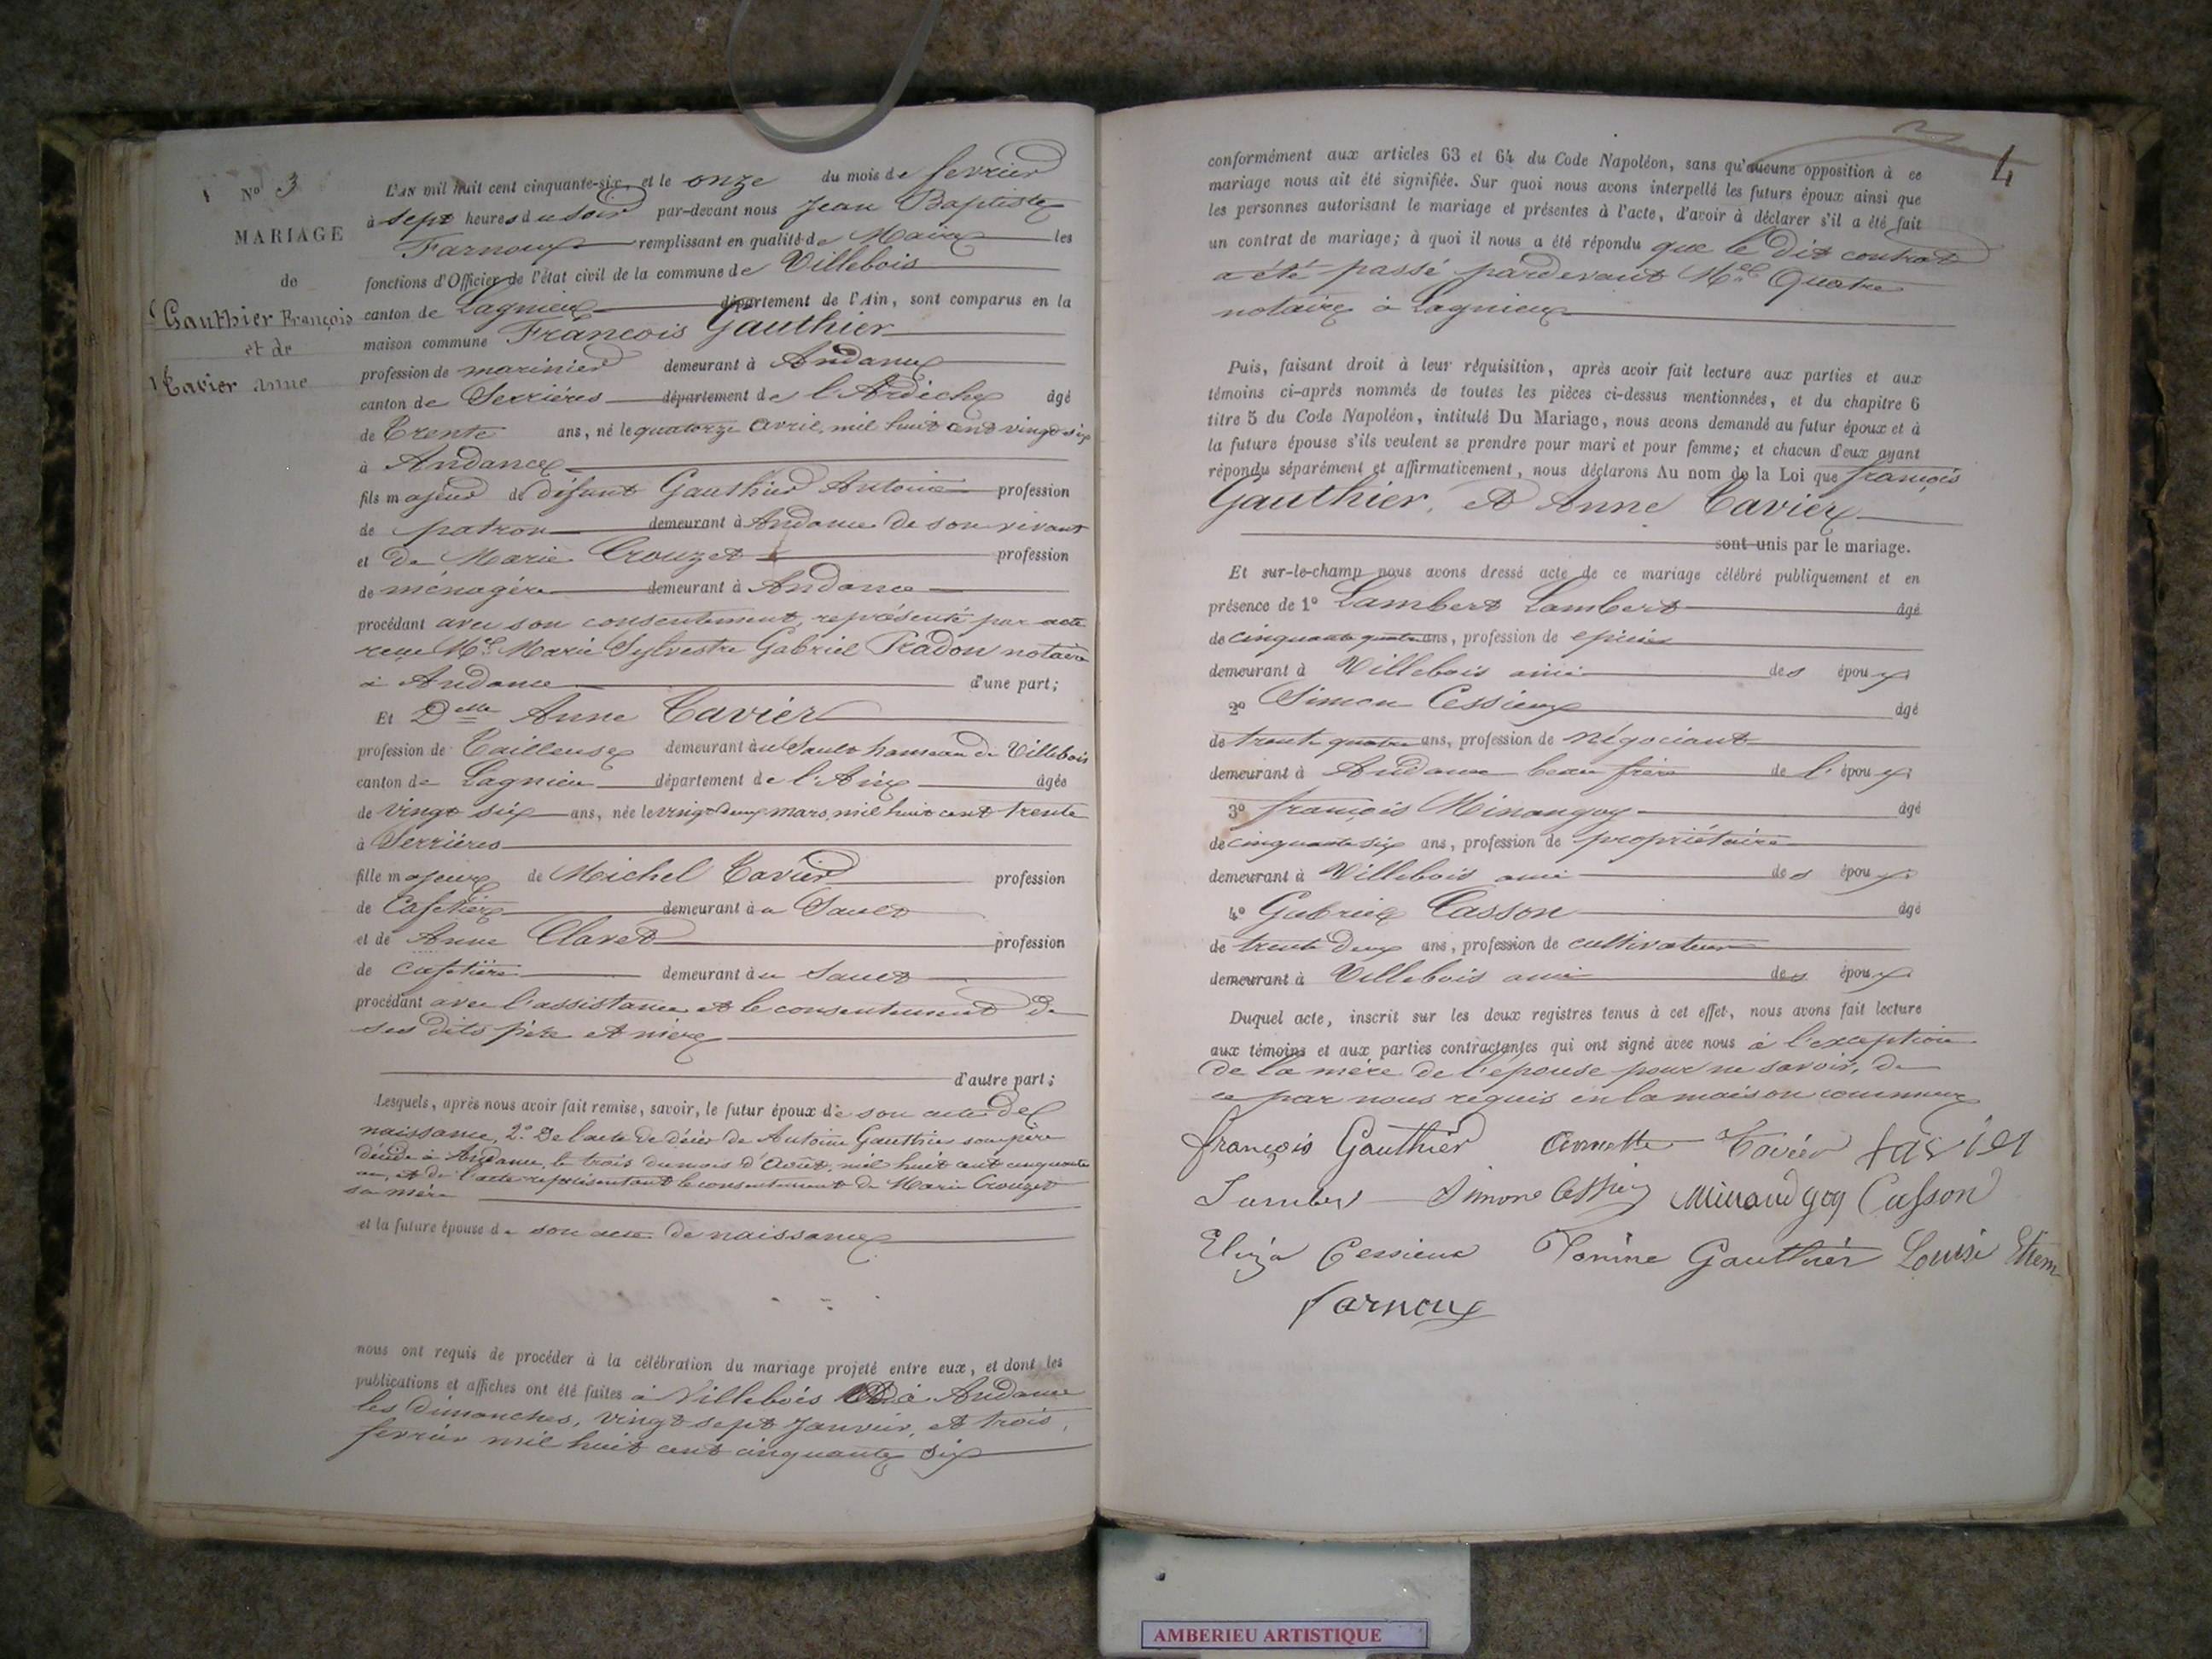 N° 3
MARIAGE
de
Gauthier François
et de
Tavier Anne
L'AN mil huit cent cinquante-six, et le onze du mois de février
à sept heures du soir par-devant nous Jean Baptiste
Farnoux remplissant en qualité de Maire les
fonctions d'Officier de l'état civil de la commune de Villebois
canton de Lagnieu département de l'Ain, sont comparus en la
maison commune François Gauthier
profession de marinier demeurant à Andance
canton de Serrières département de l'Ardèche âgé
de Trente ans, né le quatorze avril, mil huit cent vingt six
à Andance
fils majeur de défunt Gauthier Antoine profession
de patron demeurant à Andance de son vivant
et de Marie Crouzet profession
de ménagère demeurant à Andance
procédant avec son consentement, représenté par acte
reçu Me Marie Sylvestre Gabriel Pradon notaire
à Andance d'une part;
Et Delle Anne Tavier
profession de Tailleuse demeurant au Sault hameau de Villebois
canton de Lagnieu département de l'Ain âgée
de vingt six ans, née le vingt deux mars, mil huit cent trente
à Serrières
fille majeure de Michel Tavier profession
de Cafetier demeurant au Sault
et de Anne Claret profession
de cafetière demeurant au Sault
procédant avec l'assistance et le consentement de
ses dits père et mère
d'autre part;
Lesquels, après nous avoir fait remise, savoir, le futur époux de son acte de
naissance, 2° De l'acte de décès de Antoine Gauthier son père
décédé à Andance, le trois du mois d'Août, mil huit cent cinquante
un, et de l'acte représentant le consentement de Marie Crouzet
sa mère
et la future épouse de son acte de naissance
nous ont requis de procéder à la célébration du mariage projeté entre eux, et dont les
publications et affiches ont été faites à Villebois à Andance
les dimanches, vingt sept Janvier, et trois
février mil huit cent cinquante six
4
conformément aux articles 63 et 64 du Code Napoléon, sans qu'aucune opposition à ce
mariage nous ait été signifiée. Sur quoi nous avons interpellé les futurs époux ainsi que
les personnes autorisant le mariage et présentes à l'acte, d'avoir à déclarer s'il a été fait
un contrat de mariage; à quoi il nous a été répondu que le dit contrat
a été passé pardevant Me Quatre
notaire à Lagnieu
Puis, faisant droit à leur réquisition, après avoir fait lecture aux parties et aux
témoins ci-après nommés de toutes les pièces ci-dessus mentionnées, et du chapitre 6
titre 5 du Code Napoléon, intitulé Du Mariage, nous avons demandé au futur époux et à
la future épouse s'ils veulent se prendre pour mari et pour femme; et chacun d'eux ayant
répondu séparément et affirmativement, nous déclarons Au nom de la Loi que françois
Gauthier, et Anne Tavier
sont unis par le mariage.
Et sur-le-champ nous avons dressé acte de ce mariage célébré publiquement et en
présence de 1° Lambert Lambert âgé
de cinquante quatre ans, profession de epicier
demeurant à Villebois ami des époux
2° Simon Cessieux âgé
de trente quatre ans, profession de négociant
demeurant à Andance beau frère de l'époux
3° françois Minangoy âgé
de cinquante six ans, profession de propriétaire
demeurant à Villebois ami des époux
4° Gabriel Casson âgé
de trente deux ans, profession de cultivateur
demeurant à Villebois ami des époux
Duquel acte, inscrit sur les deux registres tenus à cet effet, nous avons fait lecture
aux témoins et aux parties contractantes qui ont signé avec nous à l'exception
de la mère de l'épouse pour ne savoir, de
ce par nous requis en la maison commune
françois Gauthier Annette Tavier tavier
Lambert Simon Cessieux Minandgoy Casson
Eliza Cessieux Gauthier Louise
Farnoux
AMBERIEU ARTISTIQUE